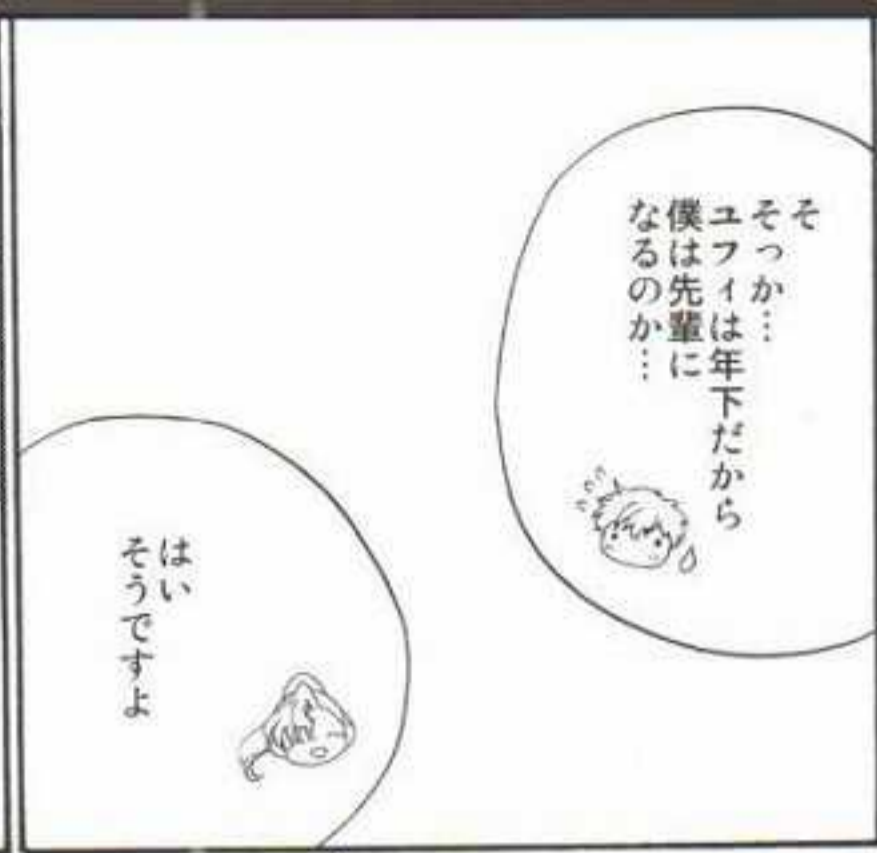 そ
そっか…
ユフィは年下だから
僕は先輩に
なるのか…
はい
そうですよ